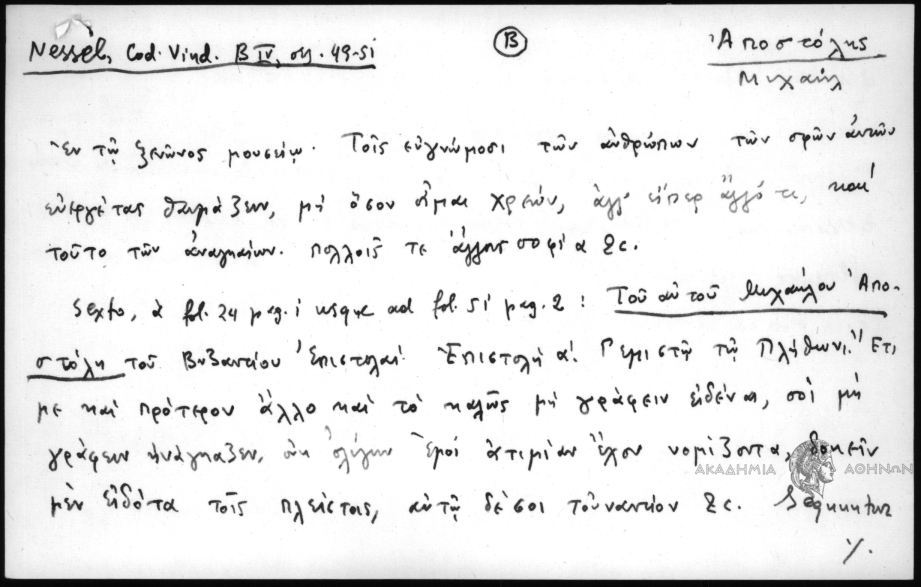 Nessel, Cod. Vind. B IV, σσ. 49-51
Β
Ἀποστόλης
Μιχαὴλ
Ἐν τῷ ξενῶνος μουσείῳ. Τοῖς εὐγνώμοσι τῶν ἀνθρώπων τῶν σφῶν αὐτῶν
εὐεργέτας θαυμάζειν, μὴ ὅσον οἶμαι χρεών, ἀλλ' εἴπερ ἄλλό τι, καὶ
τοῦτο τῶν ἀναγκαίων. πολλοῖς τε ἄλλης σοφία &c.
Sexto, à fol. 24 pag. 1 usque ad fol. 51 pag. 2 : Τοῦ αὐτοῦ Μιχαήλου Ἀπο-
στόλη τοῦ Βυζαντίου Ἐπιστολαί. Ἐπιστολὴ α'. Γεμιστῷ τῷ Πλήθωνι. Ἔτι
με καὶ πρότερον ἄλλο καὶ τὸ καλῶς μὴ γράφειν εἰδέναι, σοὶ μὴ
γράφειν ἠνάγκαζεν, οὐκ ὀλίγην ἐμοὶ ἀτιμίαν ἔχον νομίζοντα, δοκεῖν
μὲν εἰδότα τοῖς πλείστοις, αὐτῷ δέ σοι τοὐναντίον &c. Sequuntur
ΑΚΑΔΗΜΙΑ ΑΘΗΝΩΝ
./.